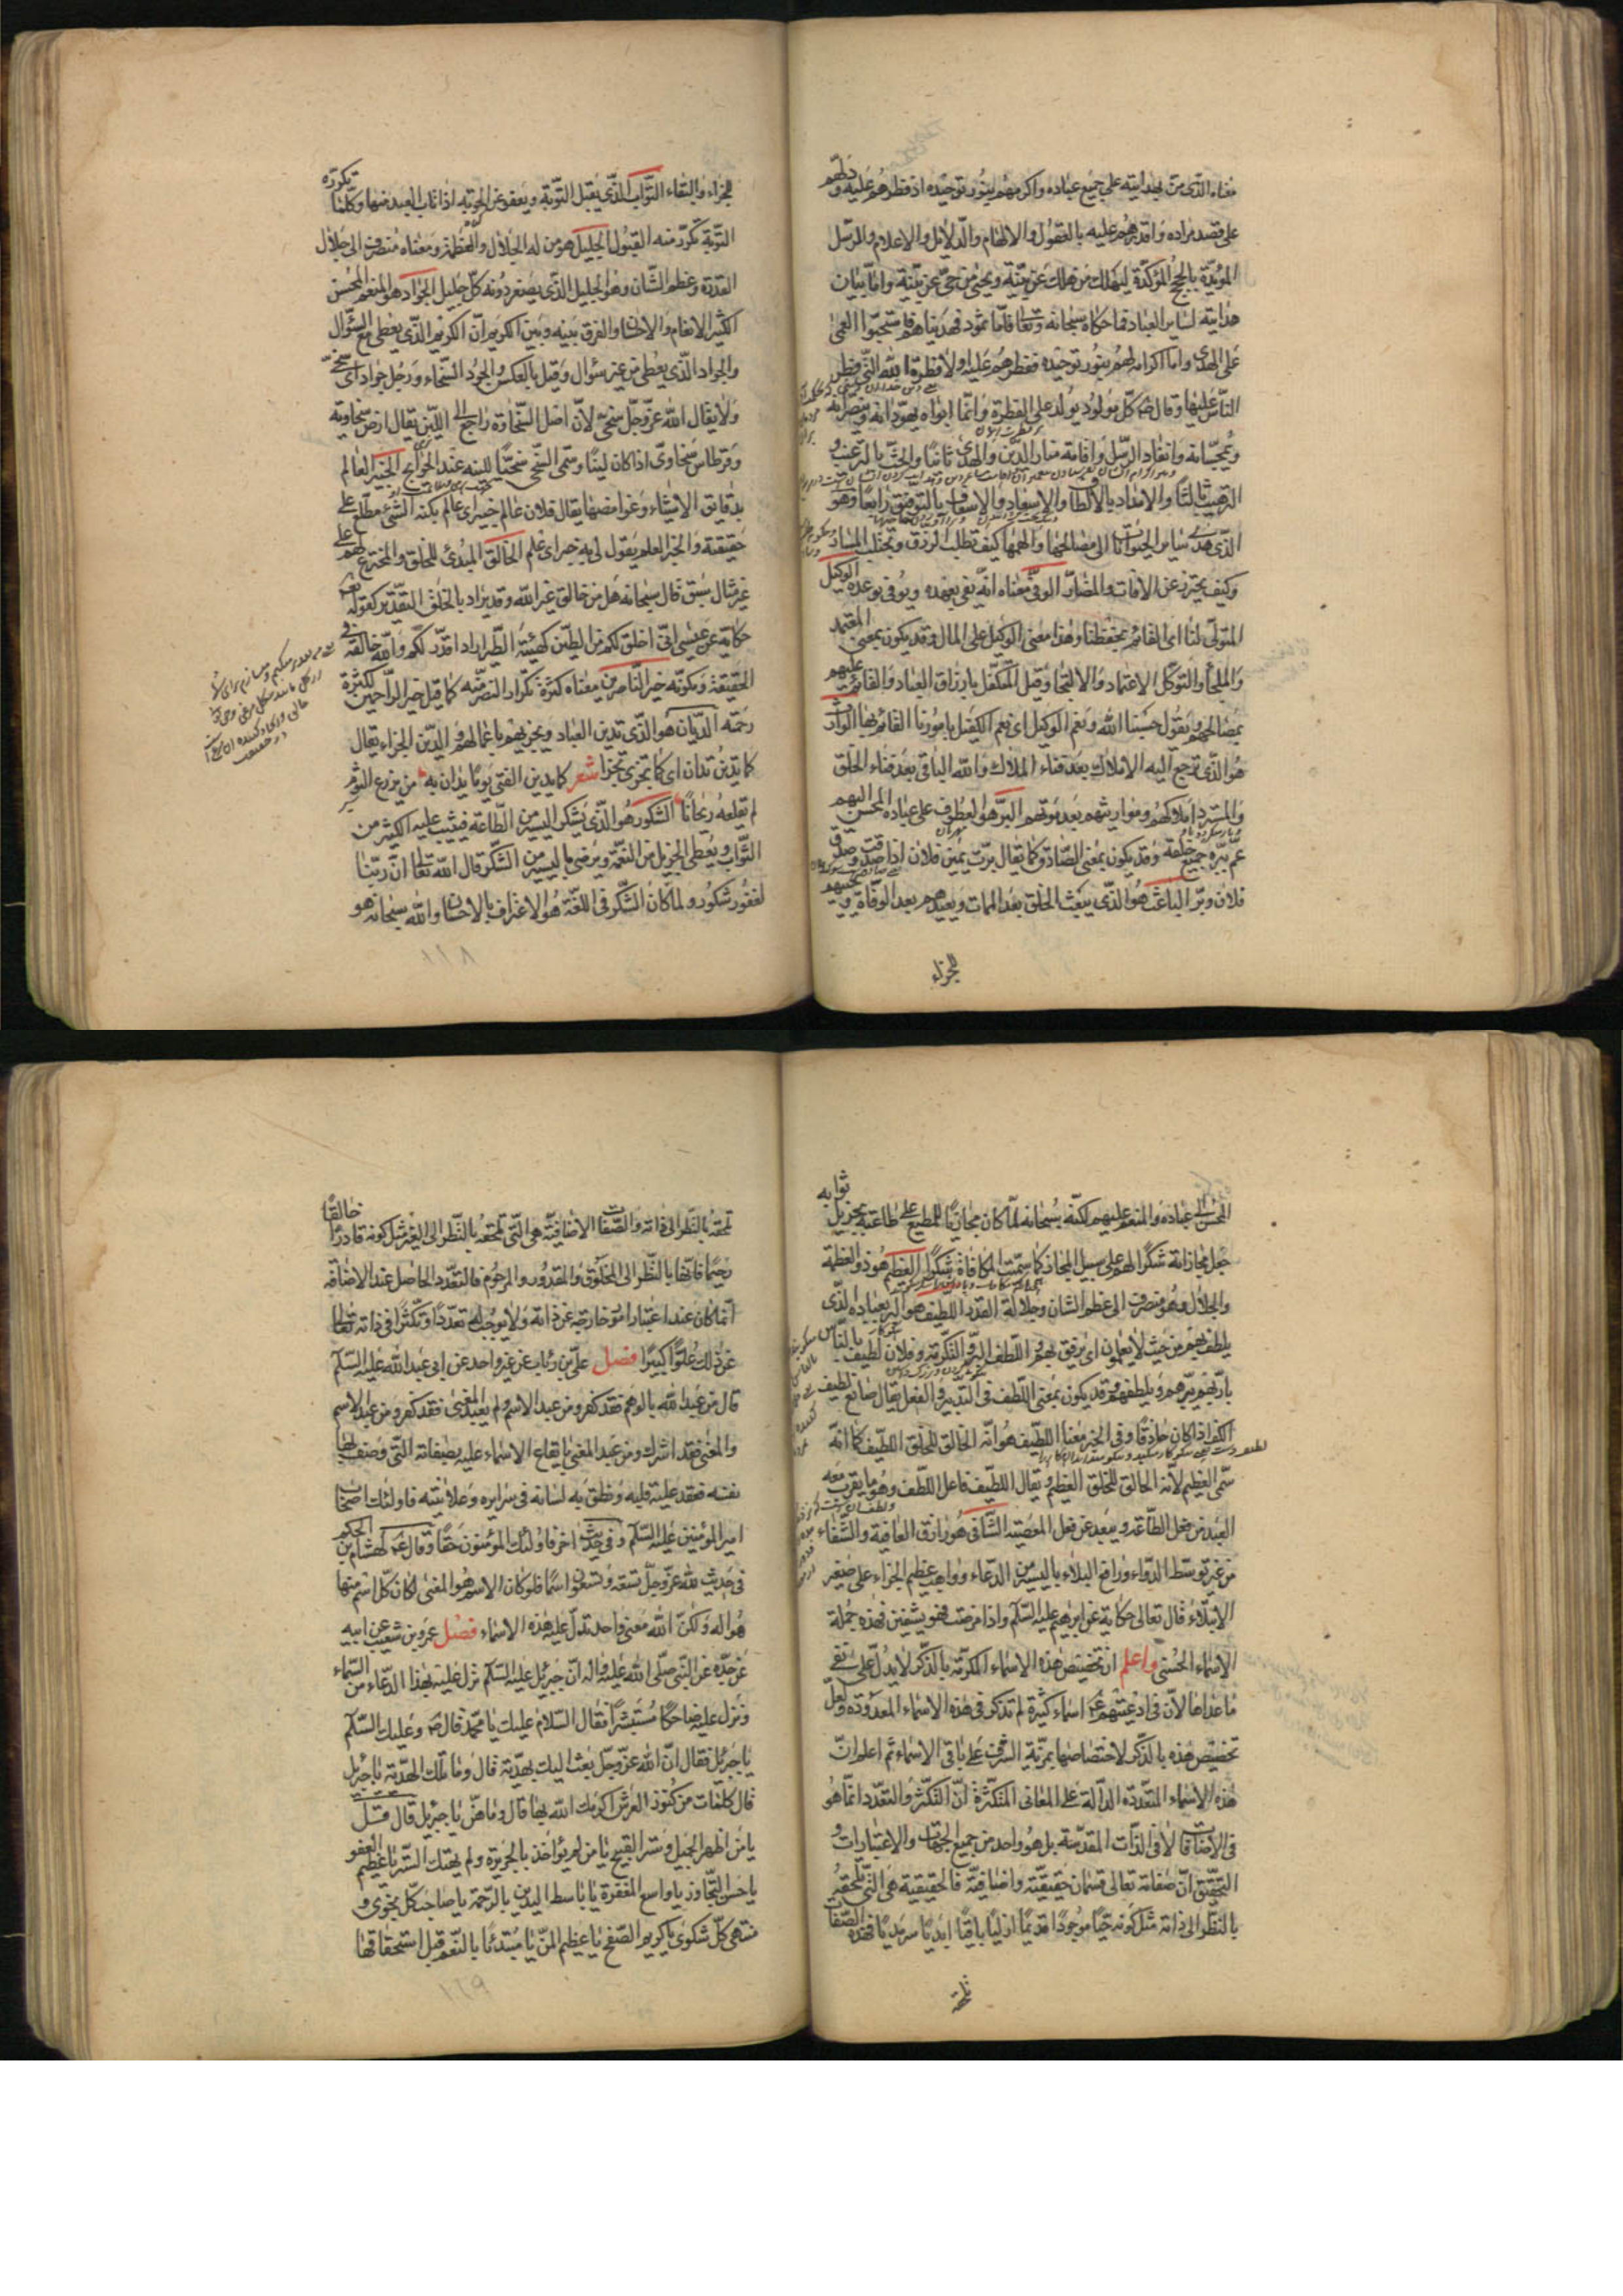 معناه الذي منّ بهدايته على جميع عباده واكرمهم بنور توحيده اذ فطرهم عليه ودلّهم
على قصد مراده واقدرهم عليه بالعقول والالهام والدلائل والاعلام والرسل
المؤيّدة بالحجج المؤكّدة ليهلك من هلك عن بيّنة ويحيى من حيّ عن بيّنة وامّا بيان
هدايته لسائر العباد فما حكاه سبحانه وتعا فامّا ثمود فهديناهم فاستحبّوا العمى
على الهدى واما اكرامه لهم بنور توحيده ففطرهم عليه اولا فطرة الله التي فطر
الناس عليها وقال ص كلّ مولود يولد على الفطرة وانّما ابواه يهوّدانه وينصّرانه
ويمجّسانه وانفاد الرسل واقامة منار الدّين والهدى ثانيا والحثّ بالترغيب و
الترهيب ثالثا والامداد بالالطاف والاسعاد والاسعاف بالتوفيق رابعا وهو
الذي هدى سائر الحيوانات الى مصالحها والهمها كيف تطلب الرزق وتجتلب المسار
وكيف يحترز عن الافات والمضارّ الوفيّ معناه انّه يفى بعهده ويوفى بوعده الوكيل
المتولّى لنا اى القائم بحفظنا وهذا معنى الوكيل على المال وقد يكون بمعنى المعتمد
والملجأ والتوكّل الاعتماد والالتجا وقيل المتكفّل بارزاق العباد والقائم عليهم
بمصالحهم ويقول حسبنا الله ونعم الوكيل اى نعم الكفيل بامورنا القائم بها الوارث
هو الذي ترجع اليه الاملاك بعد فناء الملاك والله الباقى بعد فناء الخلق
والمستردّ املاكهم ومواريثهم بعد موتهم البرّ هو العطوف على عباده المحسن اليهم
عمّ ببرّه جميع خلقه وقد يكون بمعنى الصّادق كما يقال برّت يمين فلان اذا صدقت وصدق
فلان وبرّ الباعث هو الذي يبعث الخلق بعد الممات ويعيدهم بعد الوفاة ويحييهم
للجزاء
للجزاء والبقاء التّواب الذي يقبل التّوبة ويعفو عن الحوبة اذا تاب العبد منها وكلّما تكرّره
التوبة تكرّر منه القبول الجليل هو من له الجلال والعظمة ومعناه منصرف الى جلال
القدرة وعظم الشّان وهو الجليل الذي يصغر دونه كلّ جليل الجواد هو المنعم المحسن
الكثير الانعام والاحسان والفرق بينه وبين الكريم انّ الكريم الذي يعطى مع السّؤال
والجواد الذي يعطى من غير سؤال وقيل بالعكس والجود السّخاء ورجل جواد اى سخىّ
ولا يقال الله عزّ وجلّ سخىّ لانّ اصل السّخاوة راجع الى اللّين يقال ارض سخاوية
وقرطاس سخاوىّ اذا كان ليّنا وسمّى السّخى سخيّا للينه عند الحوايج الخبير العالم
بدقايق الاشياء وغوامضها يقال فلان عالم خبير اى عالم بكنه الشّىء مطّلع على
حقيقته والخبر العلم يقول لى به خبر اى علم الخالق المبدئ للخلق والمخترع لهم على
غير مثال سبق قال سبحانه هل من خالق غير الله وقد يراد بالخلق التقدير كقوله تعا
حكاية عن عيسى انّى اخلق لكم من الطّين كهيئة الطّير اراد اقدّر لكم والله خالقه فى
الحقيقة ومكوّنه خير النّاصرين معناه كثرة تكرار النصر منه كما قيل خير الراحمين لكثرة
رحمته الديّان هو الذي يدين العباد ويجزيهم باعمالهم والدّين الجزاء يقال
كما تدين تدان اى كما تجزى تجزا شعر كما يدين الفتى يوما يدان به من يزرع الثوم
لم يقلعه ريحانا الشكور هو الذي يشكر اليسير من الطّاعة فيثيب عليه الكثير من
الثّواب ويعطى الجزيل من النعمة ويرضى باليسير من الشّكر قال الله تعالى انّ ربّنا
لغفور شكور ولما كان الشّكر فى اللغة هو الاعتراف بالاحسان والله سبحانه هو
١٦٨
المحسن الى عباده والمنعم عليهم لكنّه سبحانه لمّا كان مجازيا للمطيع على طاعته بجزيل ثوابه
جعل مجازاته شكرا لهم على سبيل المجاز كما سمّيت المكافاة شكرا العظيم هو ذو العظمة
والجلال وهو منصرف الى عظم الشان وجلالة القدر اللطيف هو البرّ بعباده الذي
يلطف بهم من حيث لا يعلمون اى يرفق بهم واللطف البرّ والتكرمة وفلان لطيف بالنّاس
بارّ بهم يبرّهم ويلطفهم وقد يكون بمعنى اللّطف فى التدبير والفعل يقال صانع لطيف
الكفّ اذا كان حاذقا وفى الخبر معنى اللطيف هو انّه الخالق للخلق اللطيف كما انّه
سمّى العظيم لانّه الخالق للخلق العظيم ويقال اللطيف فاعل اللطف وهو ما يقرب معه
العبد من فعل الطّاعة ويبعد عن فعل المعصية الشّافى هو رازق العافية والشّفاء
من غير توسّط الدّواء ورافع البلاء باليسير من الدّعاء وواهب عظيم الجزاء على صغير
الابتلاء قال تعالى حكاية عن ابرهيم عليه السّلم واذا مرضت فهو يشفين فهذه جملة
الاسماء الحسنى واعلم ان تخصيص هذه الاسماء المكرّمة بالذّكر لا يدلّ على نفى
ما عداها لانّ فى ادعيتهم ع اسماء كثيرة لم تذكر فى هذه الاسماء المعدودة ولعلّ
تخصيص هذه بالذّكر لاختصاصها بمزيّة الشرف على باقى الاسماء ثم اعلم انّ
هذه الاسماء المتعدّدة الدالّة على المعانى المتكثّرة انّ التكثّر والتعدّد انّما هو
فى الاضافات لا فى الذّات المقدّسة بل هو واحد من جميع الجهات والاعتبارات و
التحقيق انّ صفاته تعالى قسمان حقيقيّة واضافيّة فالحقيقية هى التى تلحقه
بالنظر الى ذاته مثل كونه حيّا موجودا قديما ازليّا باقيا ابديّا سرمديا فهذه الصّفات
تلحقه
تلحقه بالنّظر الى ذاته والصّفات الاضافيّة هى التى تلحقه بالنّظر الى الغير مثل كونه قادرا خالقا
رحيما فانّها بالنّظر الى المخلوق والمقدور والمرحوم فالتعّدد الحاصل عند الاضافة
انّما كان عند اعتبار امور خارجة عن ذاته ولا يوجب له تعدّدا وتكثّرا فى ذاته تعالى
عن ذلك علوّا كبيرا فصل علىّ بن رئاب عن غير واحد عن ابى عبد الله عليه السّلم
قال من عبد الله بالوهم فقد كفر ومن عبد الاسم ولم يعبد المعنى فقد كفر ومن عبد الاسم
والمعنى فقد اشرك ومن عبد المعنى بايقاع الاسماء عليه بصفاته التى وصف بها
نفسه فعقد عليه قلبه ونطق به لسانه فى سرايره وعلانيته فاولئك اصحاب
امير المؤمنين عليه السّلم وفى حديث اخر فاولئك المؤمنون حقا وقال ع لهشام بن الحكم
فى حديث لله عزّ وجلّ تسعة وتسعون اسما فلو كان الاسم هو المعنى لكان كلّ اسم منها
هو اله ولكنّ الله معنى واحد تدلّ عليه هذه الاسماء فصل عمرو بن شعيب عن ابيه
عن جدّه عن النّبى صلّى الله عليه واله انّ جبرئيل عليه السّلم نزل عليه بهذا الدّعاء من السّماء
ونزل عليه ضاحكا مستبشرا فقال السّلام عليك يا محمّد قال ص وعليك السّلم
يا جبرئيل فقال انّ الله عزّ وجلّ بعث اليك بهديّة قال وما تلك الهديّة يا جبرئيل
قال كلمات من كنوز العرش اكرمك الله بها قال وما هنّ يا جبرئيل قال قل
يا من اظهر الجميل وستر القبيح يا من لم يؤاخذ بالجريرة ولم يهتك السّتر يا عظيم العفو
يا حسن التّجاوز يا واسع المغفرة يا باسط اليدين بالرّحمة يا صاحب كلّ نجوى و
منتهى كلّ شكوى يا كريم الصّفح يا عظيم المنّ يا مبتدئا بالنّعم قبل استحقاقها
١٦٩